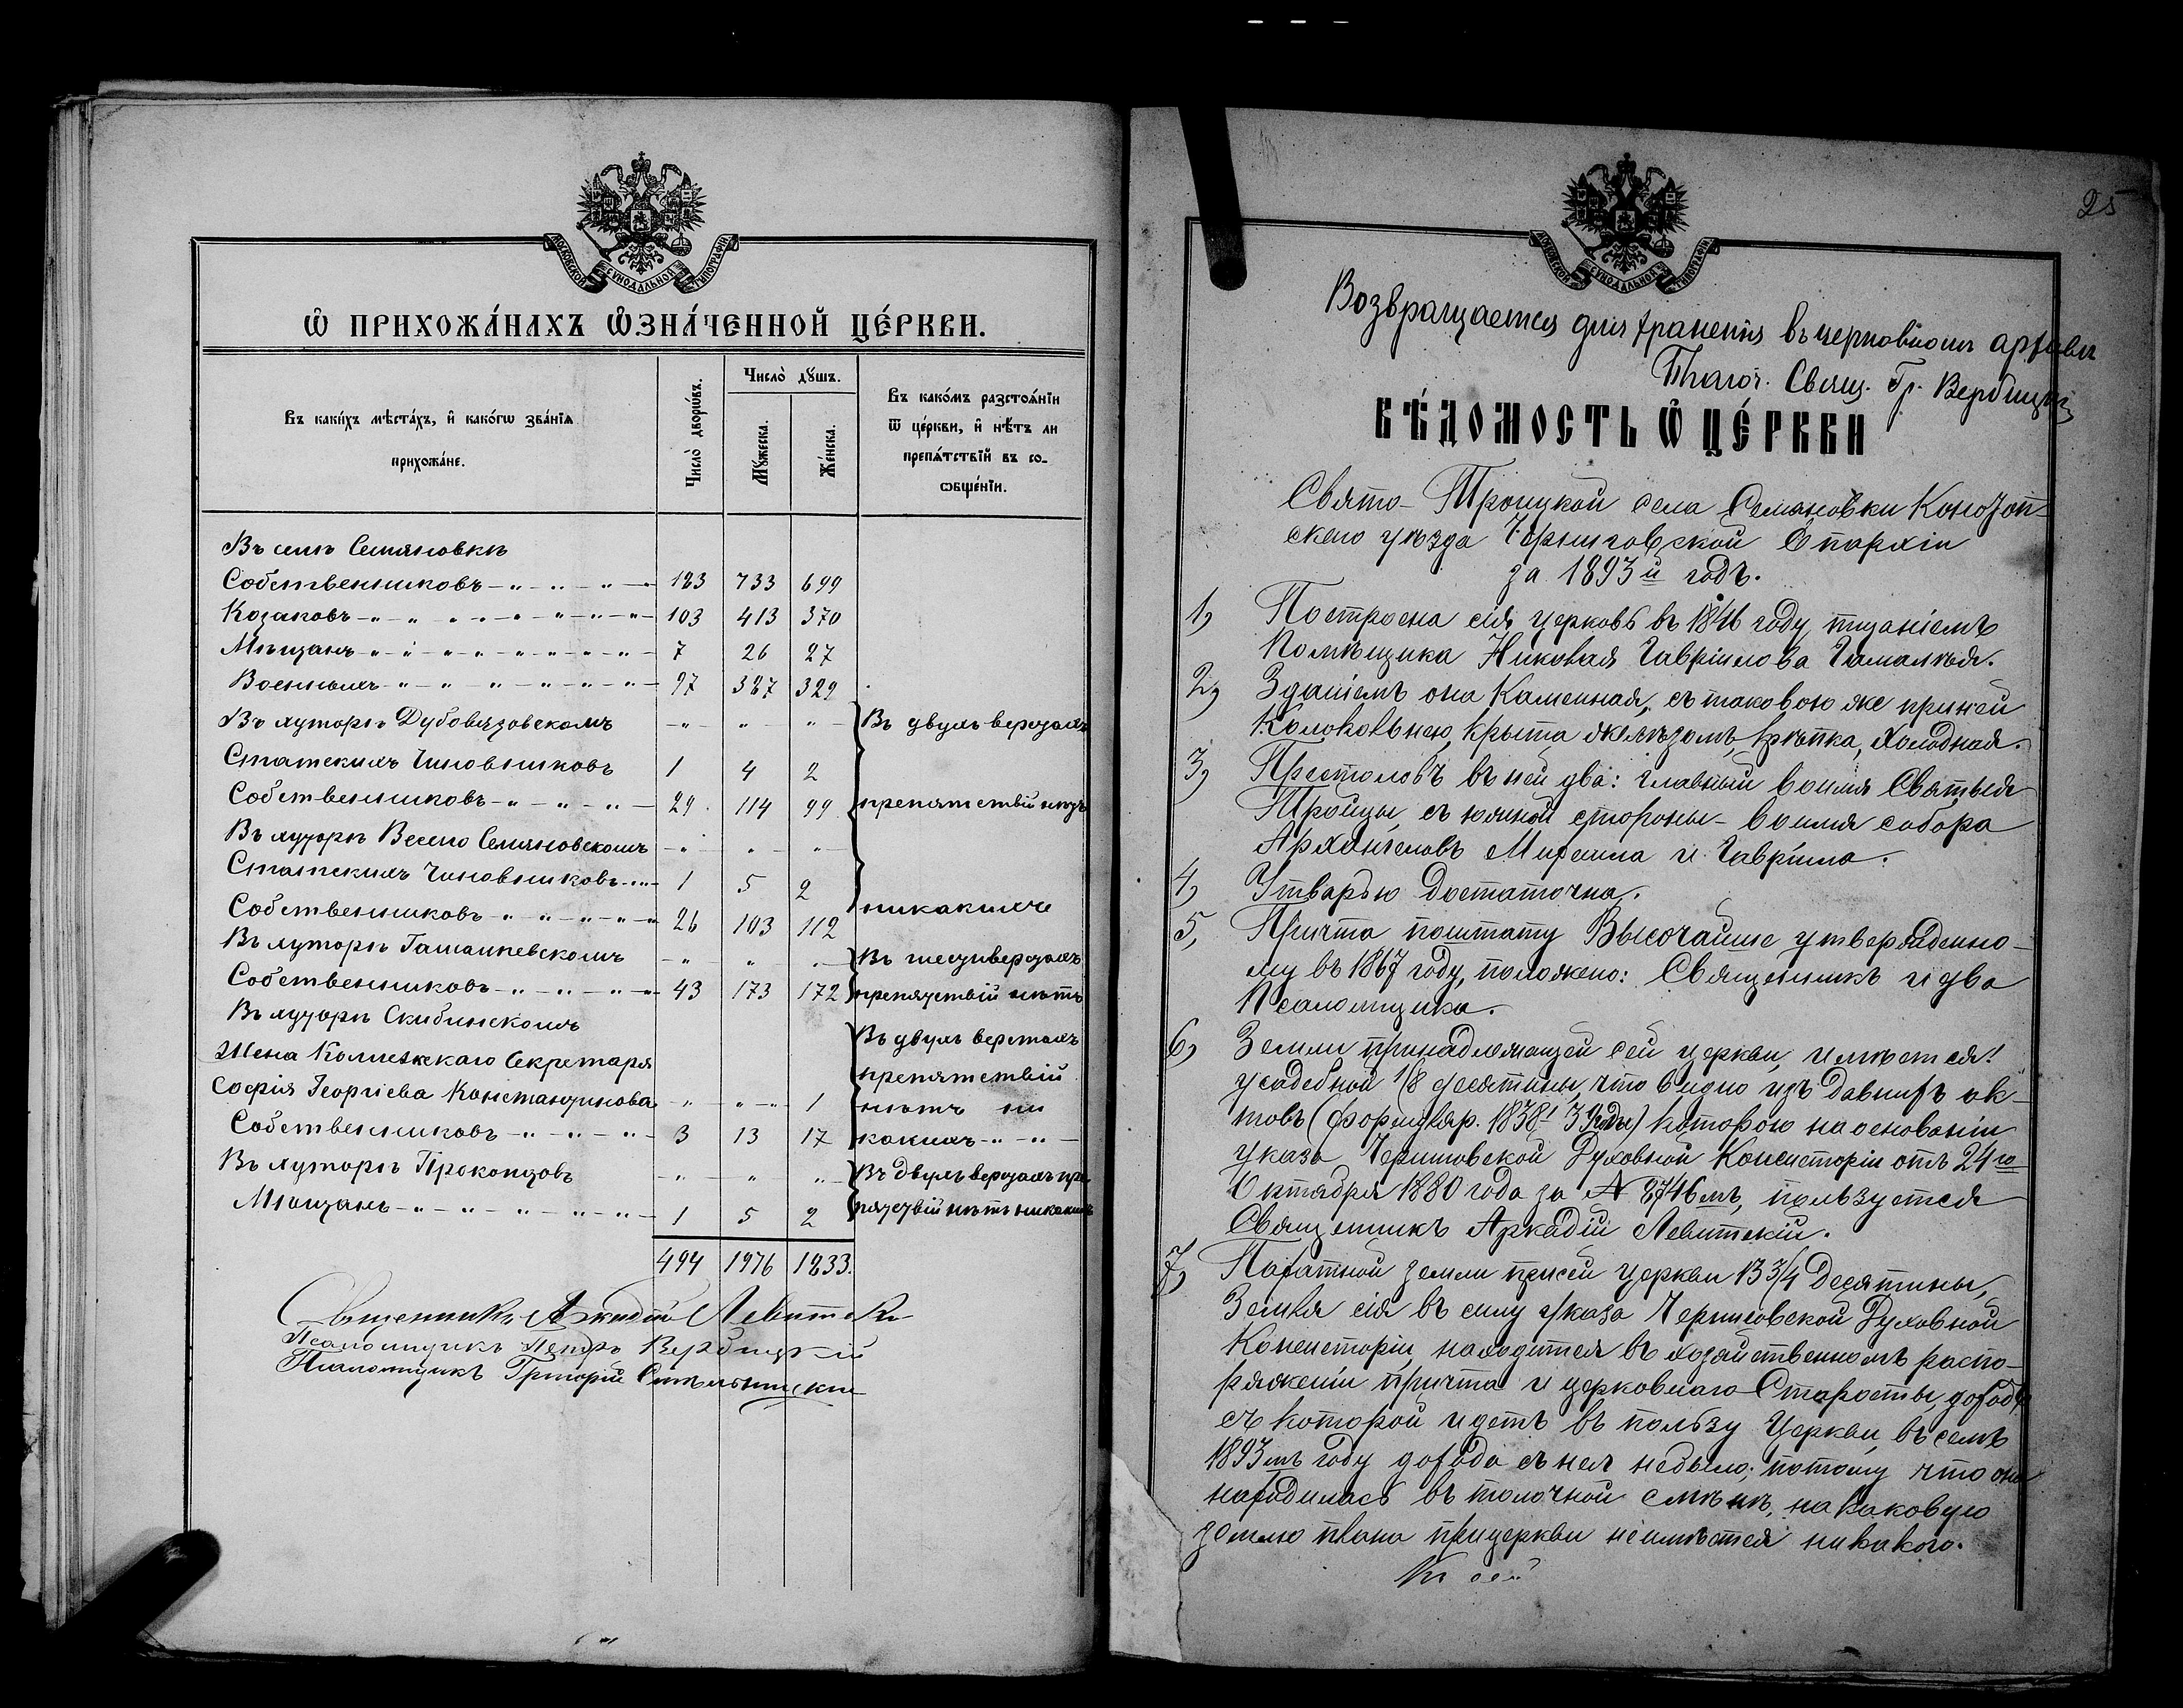 МОСКОВСКОЙ СѴНОДАЛЬНОЙ ТИПОГРАФІИ
Ѡ ПРИХОЖА́НАХЪ Ѡ҆ЗНА́ЧЕННОЙ ЦЕ́РКВИ.
Въ каки́хъ мѣста́хъ, и҆ како́гѡ зва́нїѧ прихожа́не.
Число̀ дворѡ́въ.
Число̀ дꙋшъ.
Мꙋ́жеска.
Же́нска.
Въ како́мъ разстоѧ́нїи ѿ це́ркви, и҆ нѣ́тъ ли препѧ́тствїй въ соѻбще́нїи.
Въ селѣ Семяновкѣ
Собственниковъ 183 733 699
Козаковъ 103 413 370
Мѣщанъ 7 26 27
Военныхъ 97 387 329
Въ хуторѣ Дубовязовскомъ Въ двухъ верстахъ
Статскихъ Чиновниковъ 1 4 2
Собственниковъ 29 114 99 препятствій нѣтъ
Въ хуторѣ Весело Семяновскомъ
Статскихъ Чиновниковъ 1 5 2
Собственниковъ 26 103 112 никакихъ
Въ хуторѣ Въ шести верстахъ
Собственниковъ 43 173 172 препятствій нѣтъ
Въ хуторѣ Скибинскомъ Въ двухъ верстахъ
Жена Коллежскаго Секретаря препятствій
Софія Георгіева Константинова 1 нѣтъ ни
Собственниковъ 3 13 17 какихъ
Въ хуторѣ Прокопцовъ Въ двухъ верстахъ пре
Мѣщанъ 1 5 2 пятствій нѣтъ никакихъ
494 1976 1833.
Священникъ Аркадій Левитскій
Псаломщикъ Петръ Вербицкій
Псаломщикъ Григорій
25
МОСКОВСКОЙ СѴНОДАЛЬНОЙ ТИПОГРАФІИ
Возвращается для храненія въ церковномъ архивѣ
Благоч. Свящ. Гр. Вербицкій
ВѢ́ДОМОСТЬ Ѡ҆ ЦЕ́РКВИ
Свято-Троицкой села Семяновки Конотоп-
скаго уѣзда Черниговской Епархіи
за 1893й годъ.
1, Построена сія церковь въ 1846 году, тщаніемъ
Помѣщика Николая Гавріилова Гамалѣя.
2, Зданіемъ она Каменная, съ таковою же при ней
Колокольнею, крыта желѣзомъ, крѣпка, холодная.
3, Престоловъ въ ней два: главный во имя Святыя
Тройцы, съ южной стороны - во имя собора
Архангеловъ Михаила и Гавріила.
4, Утварью достаточна.
5, Причта по штату Высочайше утвержденно-
му въ 1867 году, положено: Священникъ и два
Псаломщика.
6, Земли принадлежащей сей церкви, имѣется:
усадебной 1/8 десятины, что видно изъ давнихъ ак-
товъ (формуляр. 1838 - 39 годы) которою на основаніи
указа Черниговской Духовной Консисторіи отъ 24го
Октября 1880 года за № 8746мъ, пользуется
Священникъ Аркадій Левитскій.
7, Пахатной земли при сей Церкви 13 3/4 Десятины,
Земля сія въ силу Указа Черниговской Духовной
Консисторіи, находится въ хозяйственномъ распо-
ряженіи причта и церковнаго Старосты, доходъ
съ которой идетъ въ пользу Церкви, въ семъ
1893мъ году дохода съ нея небыло; потому что она
находилась въ толочной смѣнѣ, на каковую
землю плана при церкви неимѣется никакого.